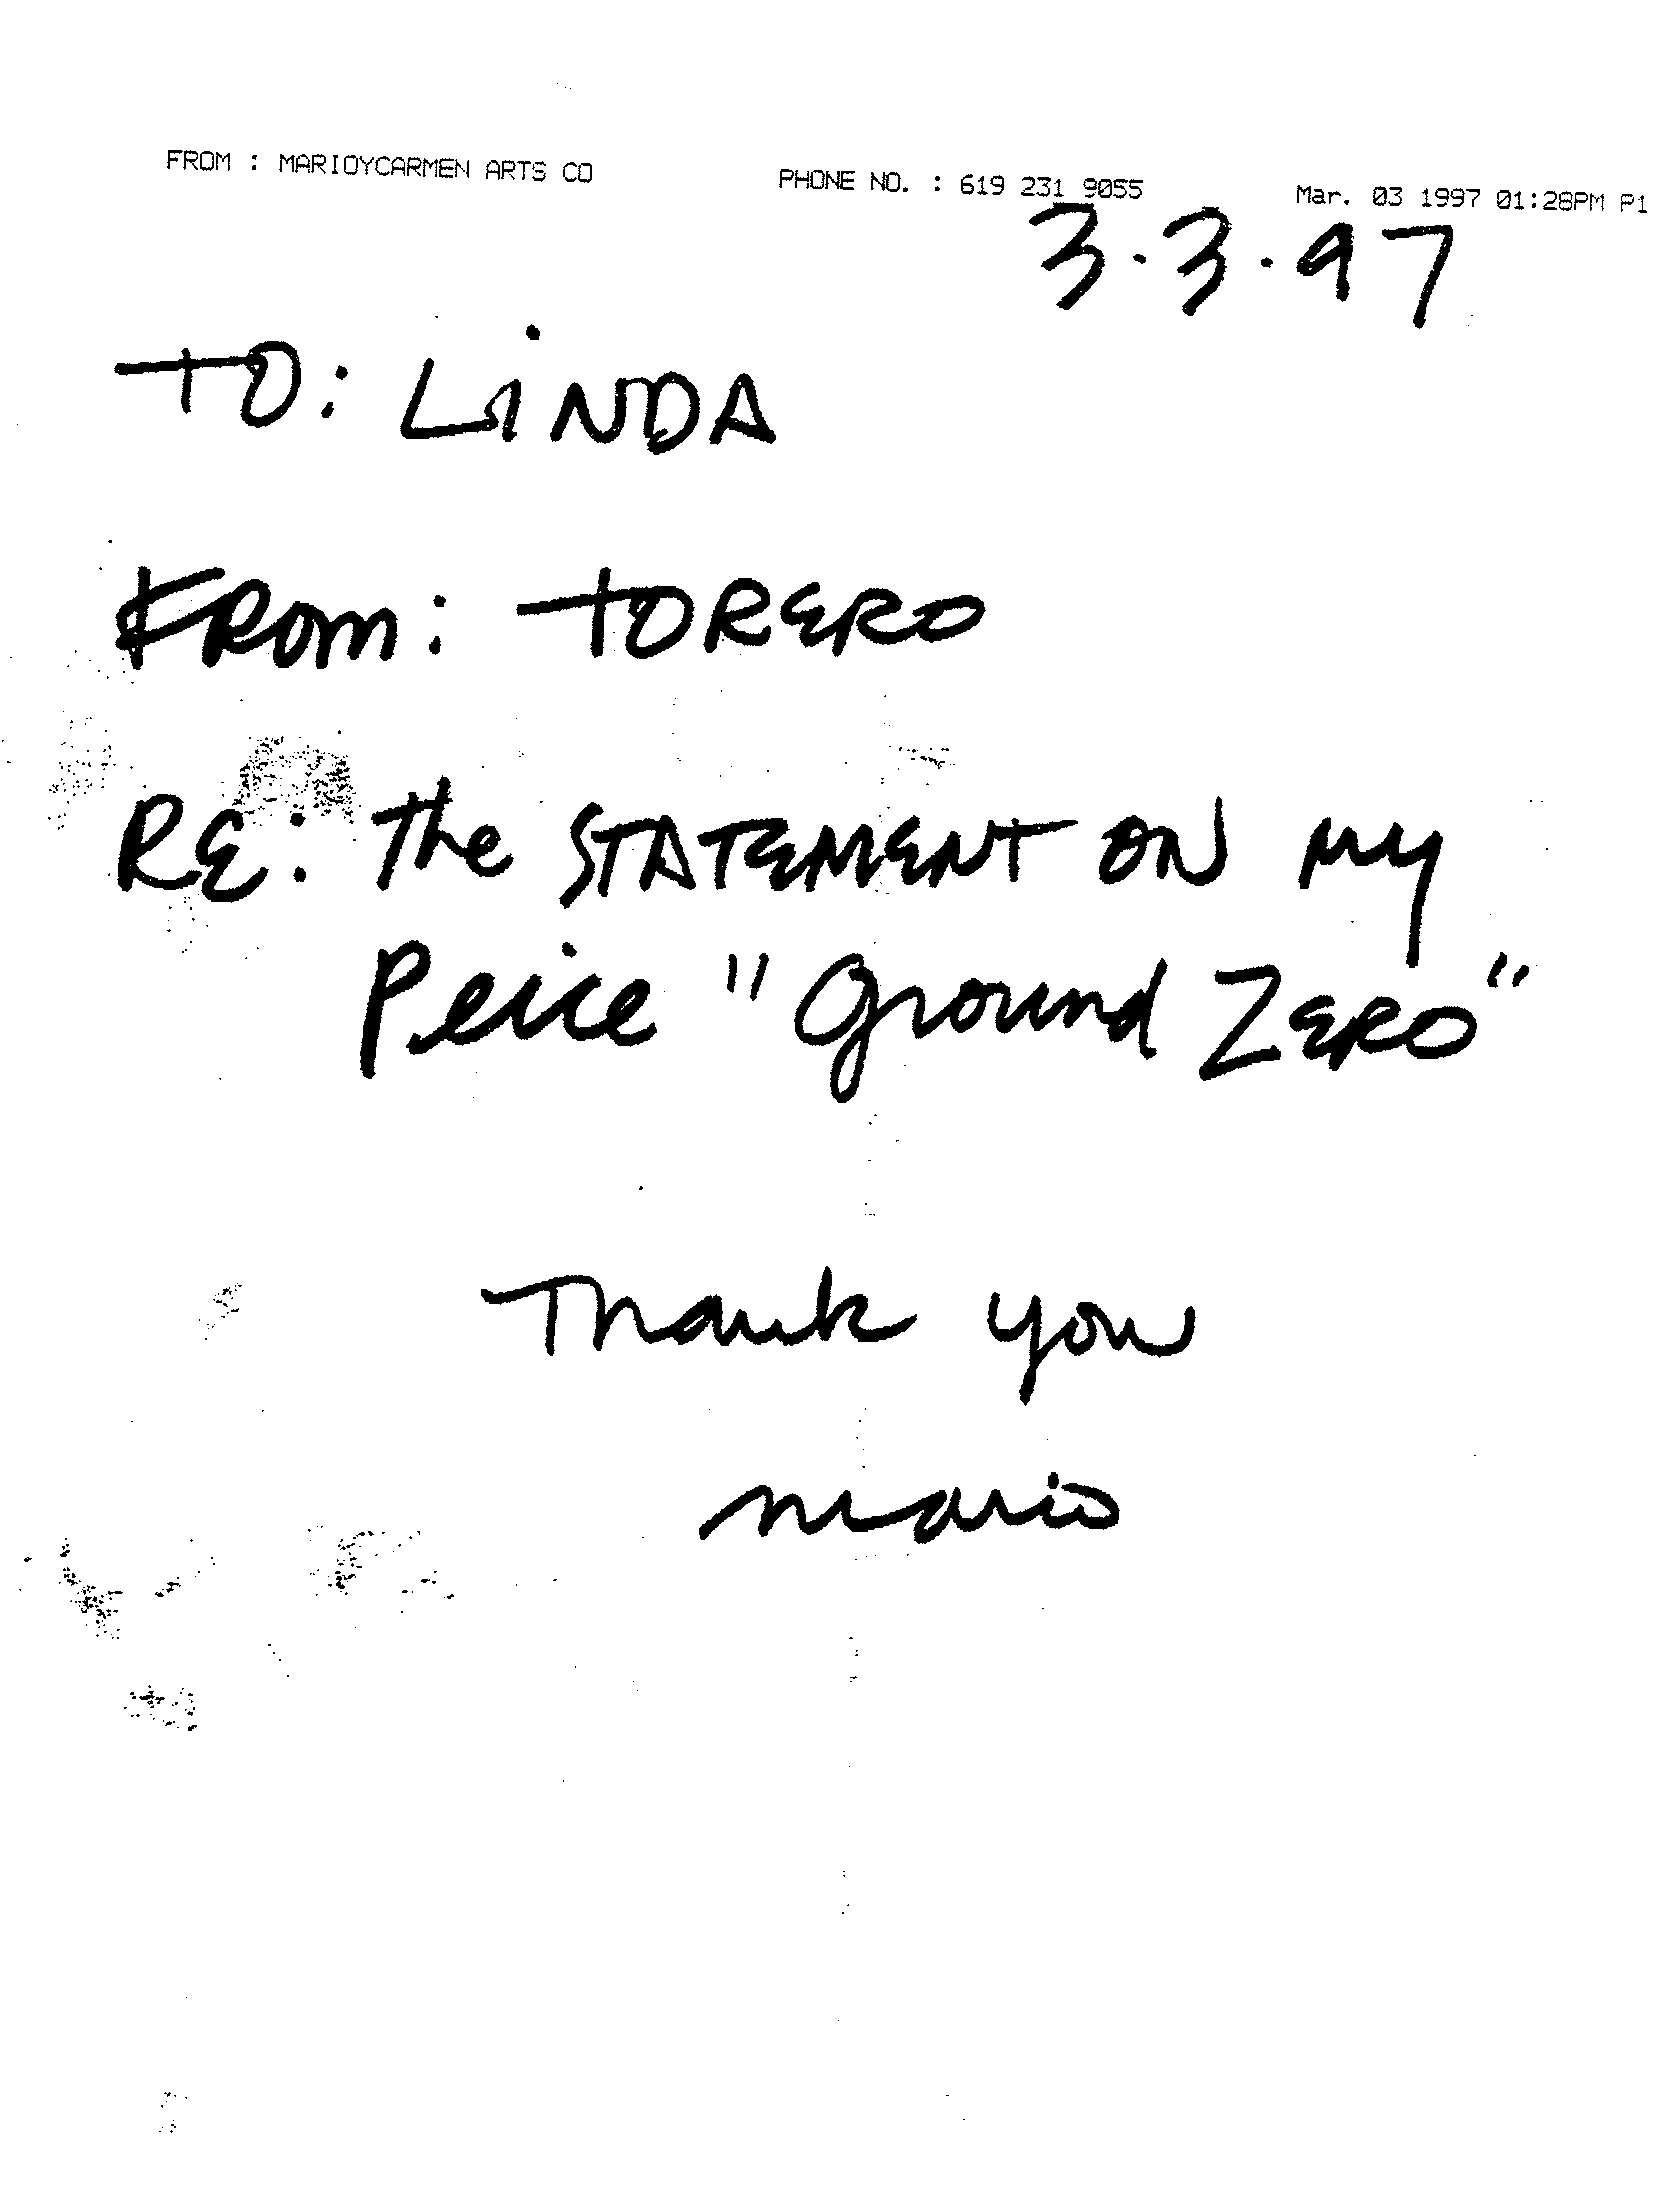 FROM : MARIOYCARMEN ARTS CO PHONE NO. : 619 231 9055 Mar. 03 1997 01:28PM P1
3.3.97
TO: LiNDA
FROm: TORERO
RE: The STATEMENT ON MY
Peice "Ground ZERO"
Thank you
Mario